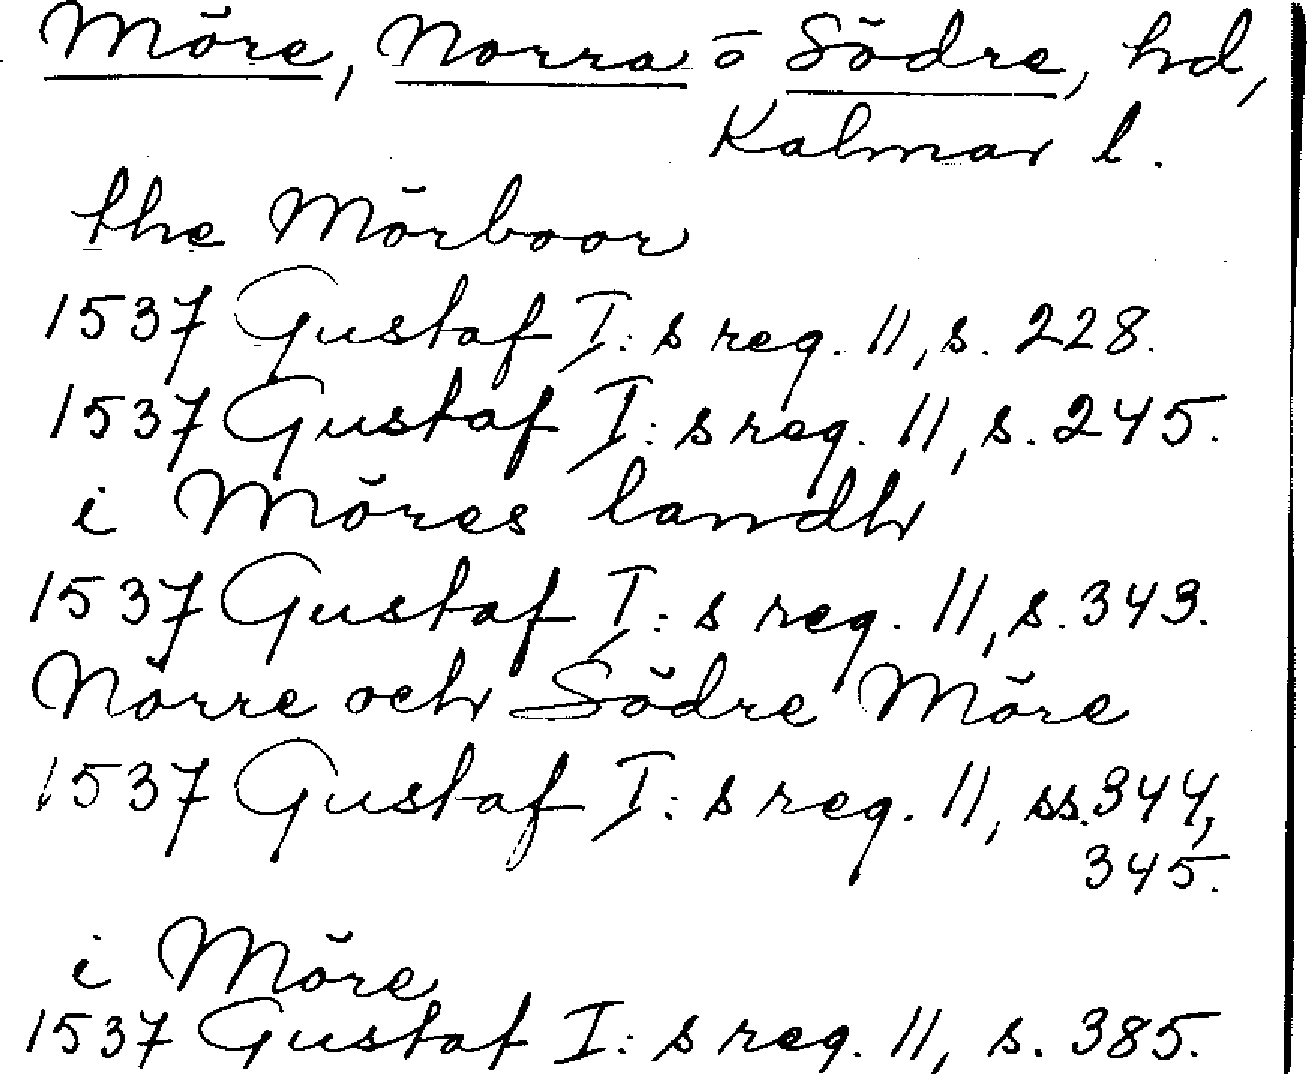 Möre, Norra o Södre, hd,
Kalmar l.
the Mörboor
1537 Gustaf I:s reg. 11, s. 228.
1537 Gustaf I:s reg. 11, s. 245.
i Möres landh
1537 Gustaf I:s reg. 11, s. 343.
Nörre och Södre Möre
1537 Gustaf I:s reg. 11, ss. 344,
345.
i Möre
1537 Gustaf I:s reg. 11, s. 385.